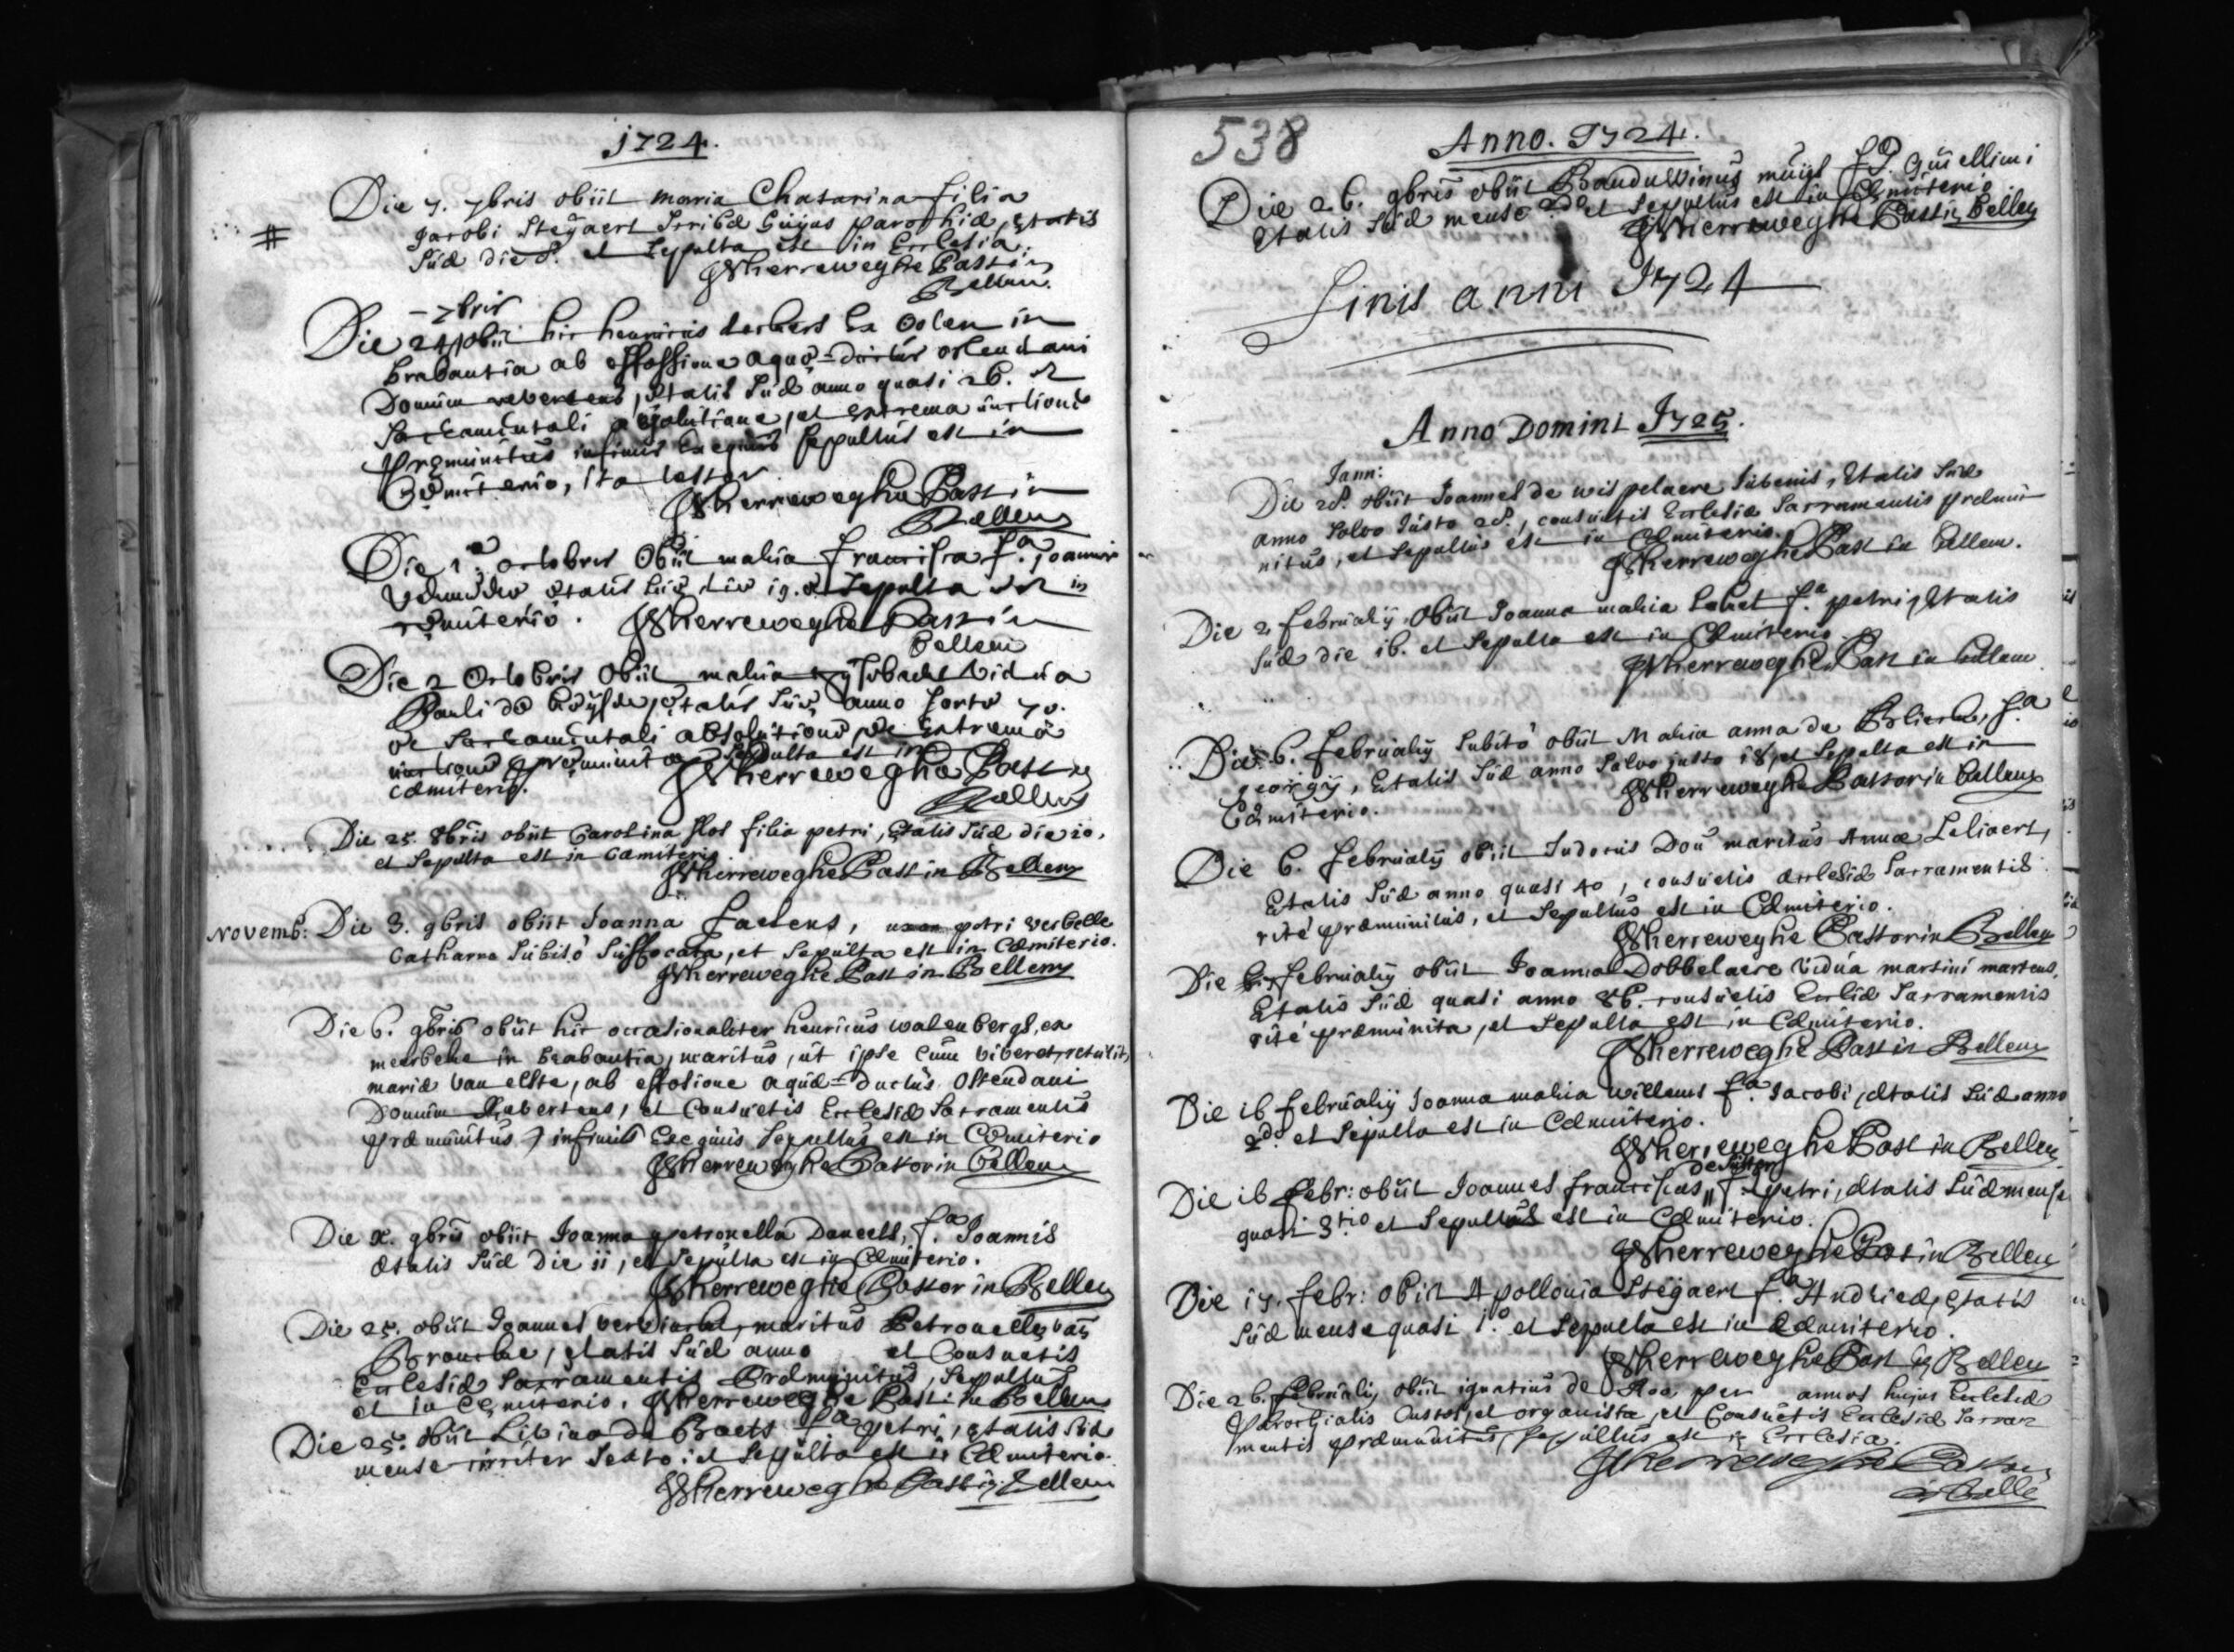 1724.
Die 7. 7bris obiit maria Chatarina filia
Jacobi Stegaert scribæ hujus parochiæ, ætatis
suæ die 8. et sepulta est in Ecclesia.
#
JVherreweghe Past in
Bellem.
7bris
Die 24 obiit hic henricus Ex Oolen in
brabantia ab effossione aquæ=ductus ostendani
Domum revertens, ætatis suæ anno quasi 26. et
sacramentali absolutione, et extrema unctione
præmunitus infimis exequiis sepultus est in
Cæmiterio, ita testor
JVherreweghe Past in
Bellem
Die 1a octobris Obiit maria francisca fa. joannis
ætatis suæ die 19. et sepulta est in
cæmiterio. JVherreweghe Past in
Bellem
Die 2 Octobris Obiit maria vidua
Pauli de ætatis suæ anno 70.
et sacramentali absolutione et Extrema
unctione præmunita sepulta est in
cæmiterio. JVherreweghe Past in
Bellem
Die 25. 8bris obiit Carolina Hos filia petri, ætatis suæ die 10.
et sepulta est in Cæmiterio.
JVherreweghe Past in Bellem
Novemb: Die 3. 9bris obiit Joanna uxor petri
Catharro subito suffocata, et sepulta est in Cæmiterio.
JVherreweghe Past in Bellem
Die 6. 9bris obiit hic occasionaliter henricus walenbergs, ex
meerbeke in brabantia, maritus, ut ipse cum viveret, retulit,
mariæ van elste, ab effosione aquæ=ductus Ostendani
Domum Revertens, et Consuetis Ecclesiæ Sacramentis
præmunitus, infimis Exequiis sepultus est in Cæmiterio
JVherreweghe Pastor in Bellem
Die X. 9bris obiit Joanna petronella Daneels, fa. Joannis
ætatis suæ Die 11, et sepulta est in Cæmiterio.
JVherreweghe Pastor in Bellem
Die 25. obiit Joannes maritus Petronellæ van
ætatis suæ anno et Consuetis
Ecclesiæ Sacramentis Præmunitus, sepultus
est in Cæmiterio. JVherreweghe Past in Bellem
Die 25. obiit Livina de Baets fa petri, ætatis suæ
mense circiter sexto et sepulta est in Cæmiterio.
JVherreweghe Past in Bellem
538
Anno. 1724.
Die 26. 9bris obiit Bauduwinus muijs fs. Guillelmi
Ætatis suæ mense 2do et sepultus est in Cæmiterio
JVherreweghe Past in Bellem
Finis anni 1724
Anno Domini 1725.
Jann:
Die 28. obiit Joannes de wispelaere Juvenis, Ætatis suæ
anno salvo justo 28., consuetis Ecclesiæ Sacramentis præmu-
nitus, et sepultus est in Cæmiterio.
JVherreweghe Past in bellem.
Die 2 februarij. Obiit Joanna maria fa. petri, Ætatis
suæ die 16. et sepulta est in Cæmiterio.
JVherreweghe Past in bellem
Die 6. februarij subito obiit Maria anna de fa
georgij, Ætatis suæ anno salvo justo 18, et sepulta est in
Cæmiterio. JVherreweghe Pastor in bellem
Die 6. februarij obiit Judocus Dou maritus Annæ Leliaert,
Ætatis suæ anno quasi 40, consuetis ecclesiæ sacramentis
rite præmunitus, et sepultus est in Cæmiterio.
JVherreweghe Pastor in Bellem
Die februarij obiit Joanna Dobbelaere vidua martini martens,
Ætatis suæ quasi anno 86. consuetis Ecclesiæ Sacramentis
rite præmunita, et sepulta est in Cæmiterio.
JVherreweghe Past in Bellem
Die 16 februarij Joanna maria willems fa. Jacobi, ætatis suæ anno
2do et sepulta est in Cæmiterio.
JVherreweghe Past in Bellem
Die 16 febr: obiit Joannes franciscus petri, ætatis suæ mense
quasi 3tio et sepultus est in Cæmiterio.
JVherreweghe Past in Bellem
Die 17. febr: obiit Apollonia Stegaert fa. Andrieæ, ætatis
suæ mense quasi 1o. et sepulta est in Cæmiterio.
JVherreweghe Past in Bellem
Die 26. februarij obiit ignatius de Roo per annos hujus Ecclesiæ
Parochialis Custos, et organista, et Consuetis Ecclesiæ Sacra-
mentis præmunitus, sepultus est in Ecclesia.
JVherreweghe Pastor
in belle